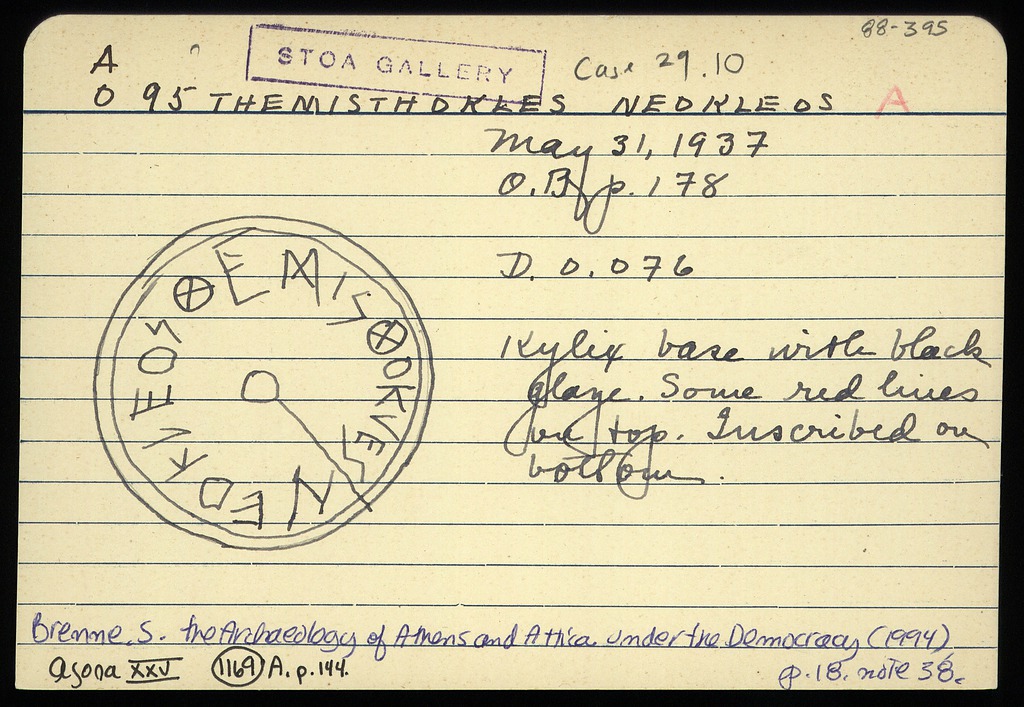 88-395
A STOA GALLERY Case 29.10
O 95 THEMISTHOKLES NEOKLEOS A
May 31, 1937
O.B. p. 178
D. 0.076
⊕EMIS⊗OKVES
NEOKVEOS
Kylix base with black
glaze. Some red lines
on top. Inscribed on
bottom.
Brenne, S. the Archaeology of Athens and Attica under the Democracy (1994)
p.18. note 38.
Agora XXV 1169 A. p.144.